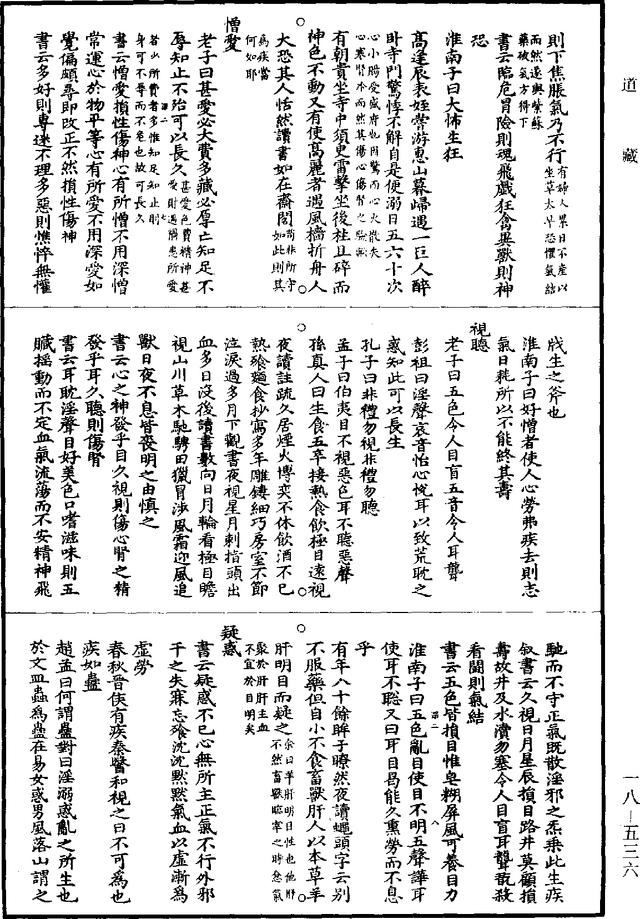 則下焦脹氣乃不行有婦人累日不產以坐草太早恐懼氣結
而然遂與紫蘇藥破氣方得下
書云臨危冒險則魂飛戲狂禽異獸則神
恐
淮南子曰大怖生狂
高逢辰表姪嘗游惠山暮歸遇一巨人醉
臥寺門驚悸不解自是便溺日五六十次
心小腸受盛府也因驚而心火散失心寒腎冷而然其傷心傷腎之驗歟
有朝貴坐寺中須臾雷擊坐後柱且碎而
神色不動又有使高麗者遇風檣折舟人
大恐其人恬然讀書如在齋閣苟非所守如此則其
為疾當何如耶
憎愛
老子曰甚愛必大費多藏必厚亡知足不
辱知止不殆可以長久甚愛色費精神甚愛財遇禍患所愛
者少所費者多惟知足知止則身可不辱而不危也故可長久
書云憎愛損性傷神心有所憎不用深憎
常運心於物平等心有所愛不用深愛如
覺偏頗尋即改正不然損性傷神
書云多好則專迷不理多惡則憔悴無懽
戕生之斧也
淮南子曰好憎者使人心勞弗疾去則志
氣日耗所以不能終其壽
視聽
老子曰五色令人目盲五音令人耳聾
彭祖曰淫聲哀音怡心悅耳以致荒耽之
惑知此可以長生
孔子曰非禮勿視非禮勿聽
孟子曰伯夷目不視惡色耳不聽惡聲
孫真人曰生食五卒接熱食飲極目遠視
夜讀註疏久居煙火博奕不休飲酒不已
熱飱麵食抄寫多年雕鏤細巧房室不節
泣淚過多月下觀書夜視星月刺指頭出
血多日沒後讀書數向日月輪看極目瞻
視山川草木馳騁田獵冒涉風霜迎風追
獸日夜不息皆喪明之由慎之
書云心之神發乎目久視則傷心腎之精
發乎耳久聽則傷腎
書云耳耽淫聲目好美色口嗜滋味則五
臟搖動而不定血氣流蕩而不安精神飛
馳而不守正氣既散淫邪之炁乘此生疾
叙書云久視日月星辰損目路井莫顧損
壽故井及水瀆勿塞令人目盲耳聾翫殺
看鬬則氣結
書云五色皆損目惟皂糊屏風可養目力
淮南子曰五色亂目使目不明五聲譁耳
使耳不聰又曰耳目曷能久熏勞而不息
乎
有年八十餘眸子瞭然夜讀蠅頭字云别
不服藥但自小不食畜獸肝人以本草羊
肝明目而疑之余曰羊肝明目性也他肝不然畜獸臨宰之時忿氣
聚於肝肝主血不宜於目明矣
疑惑
書云疑惑不已心無所主正氣不行外邪
干之失寐忘飱沈沈默默氣血以虛漸為
虛勞
春秋晉侯有疾秦醫和視之曰不可為也
疾如蠱
趙孟曰何謂蠱對曰淫溺惑亂之所生也
於文皿蟲為蠱在易女惑男風落山謂之
道藏
一八—五三六